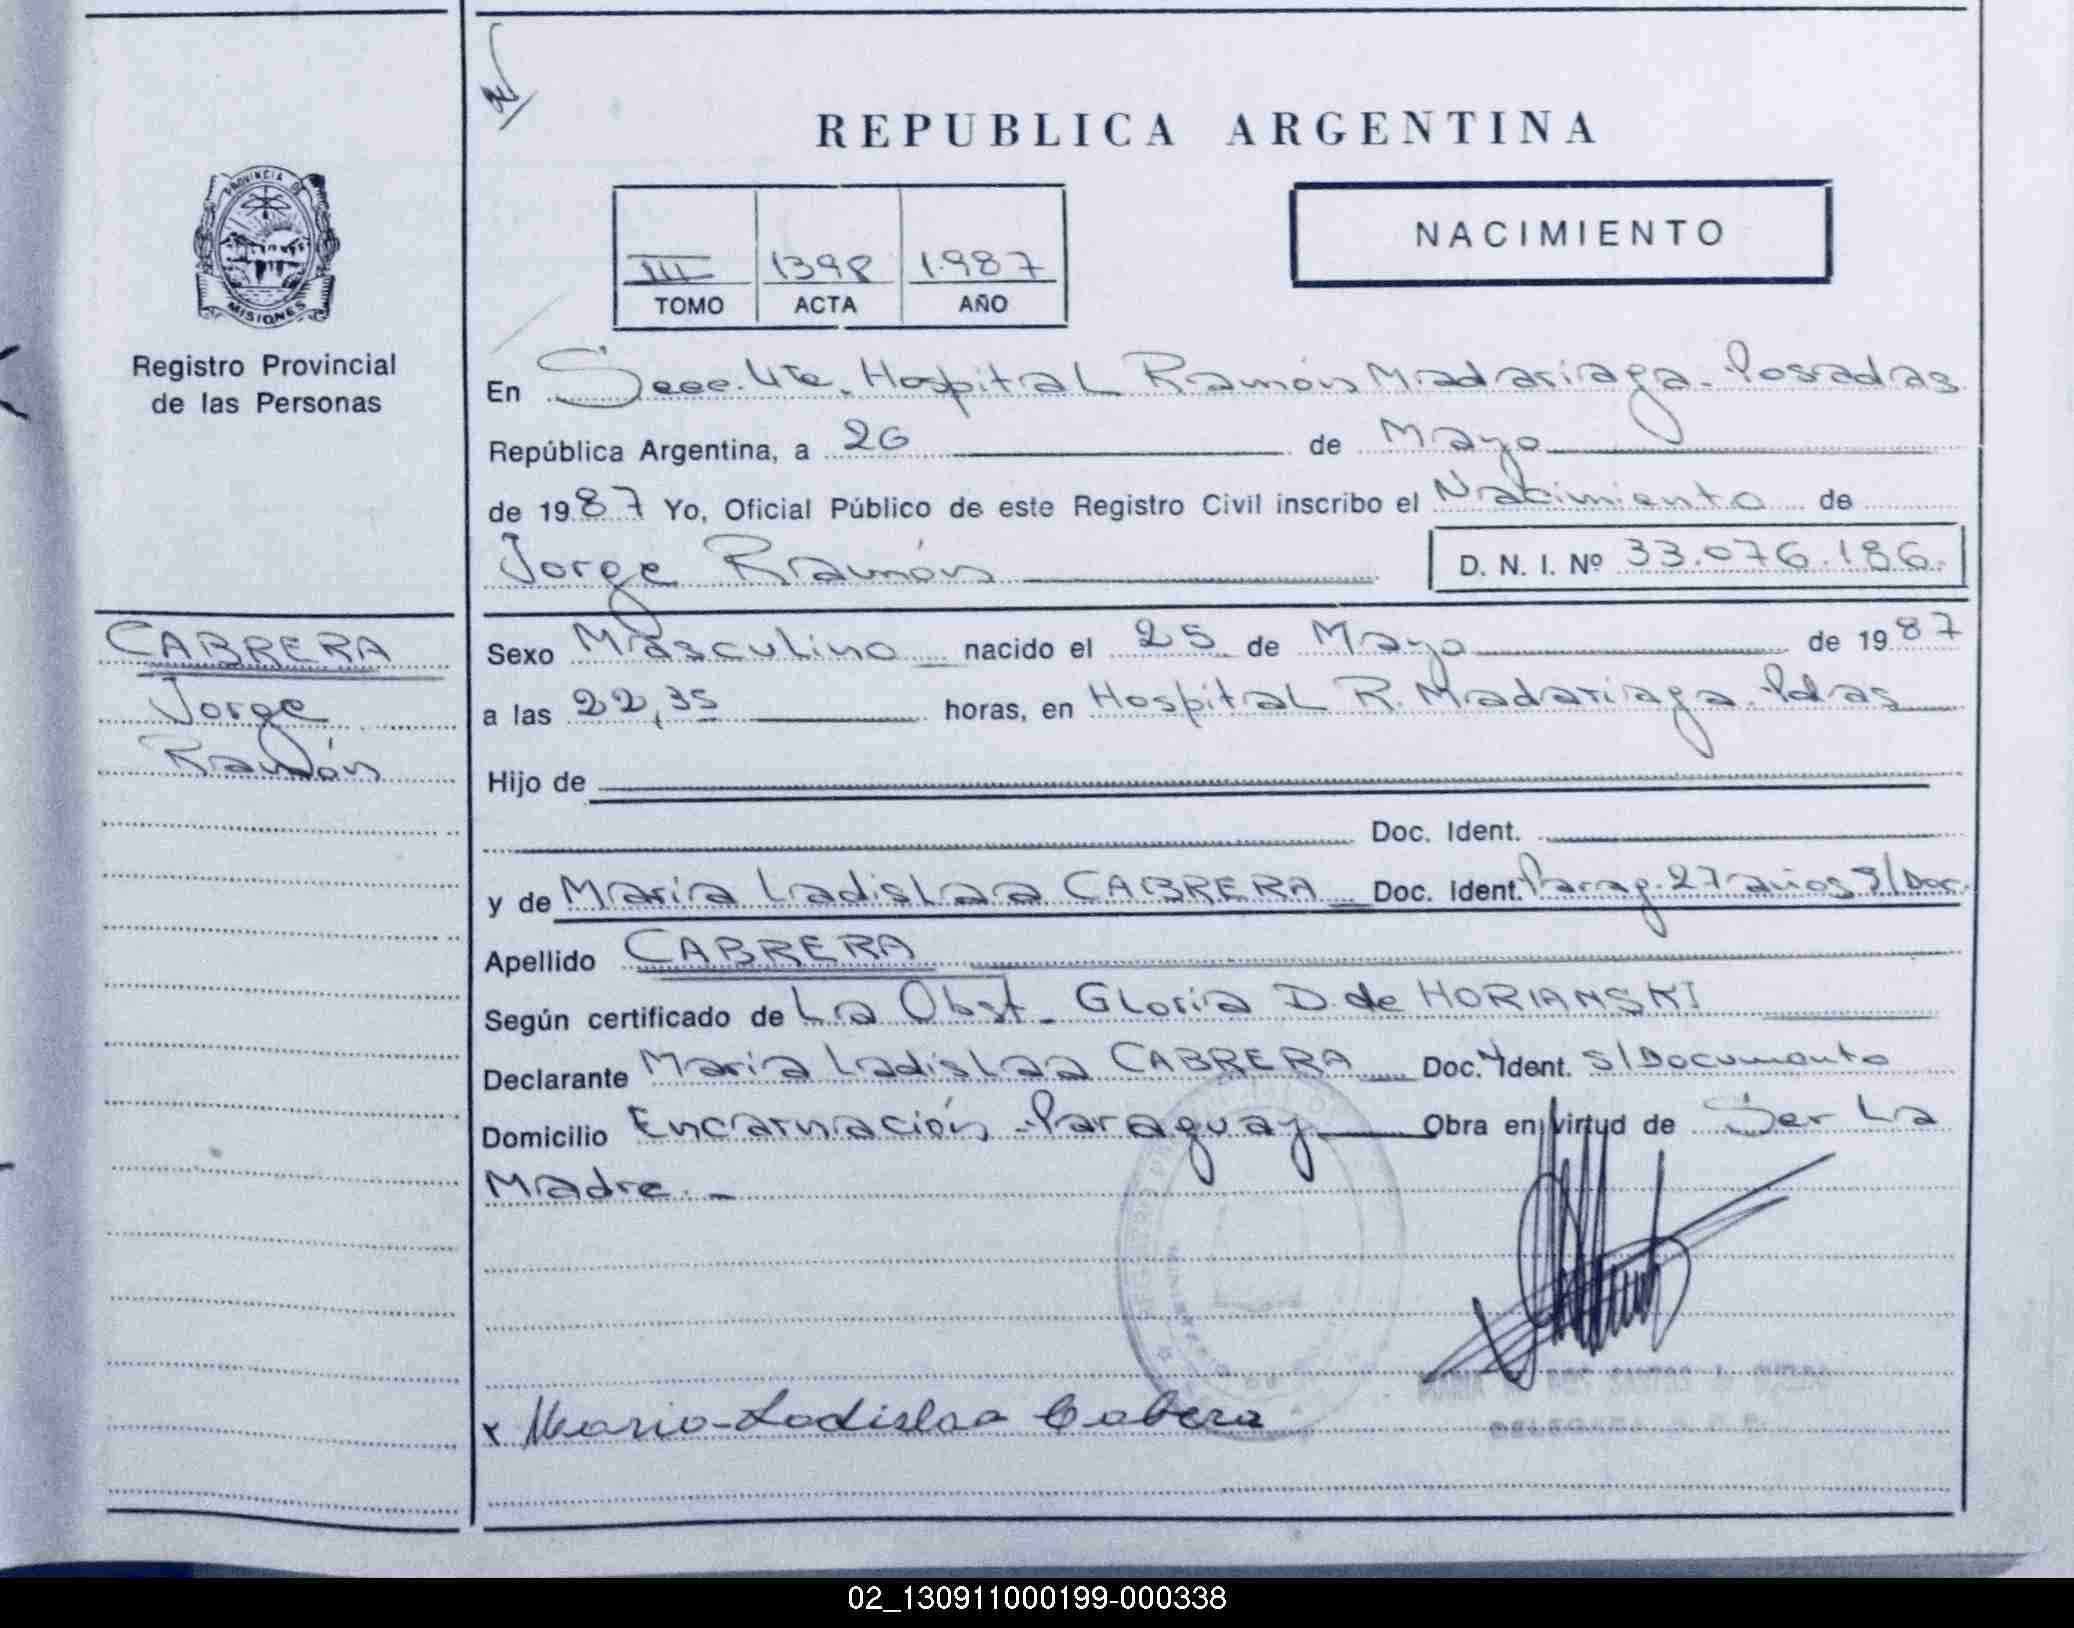 REPUBLICA ARGENTINA
NACIMIENTO
III 1398 1.987
TOMO ACTA AÑO
PROVINCIA DE
MISIONES
Registro Provincial
de las Personas
CABRERA
Jorge
Ramón
En Secc. 4ta. Hospital Ramón Madariaga. Posadas
República Argentina, a 26 de Mayo
de 1987 Yo, Oficial Público de este Registro Civil inscribo el Nacimiento de
Jorge Ramón D. N. I. Nº 33.076.186.
Sexo Masculino nacido el 25 de Mayo de 1987
a las 22,35 horas, en Hospital R. Madariaga. Pdas
Hijo de
Doc. Ident.
y de María Ladislaa CABRERA Doc. Ident. Parag. 27 años S/Doc.
Apellido CABRERA
Según certificado de La Obst. GLoria D. de HORIANSKI
Declarante María Ladislaa CABRERA Doc. Ident. S/Documento
Domicilio Encarnación - Paraguay Obra en virtud de Ser La
Madre. -
x Maria Ladislaa Cabrera
02_130911000199-000338